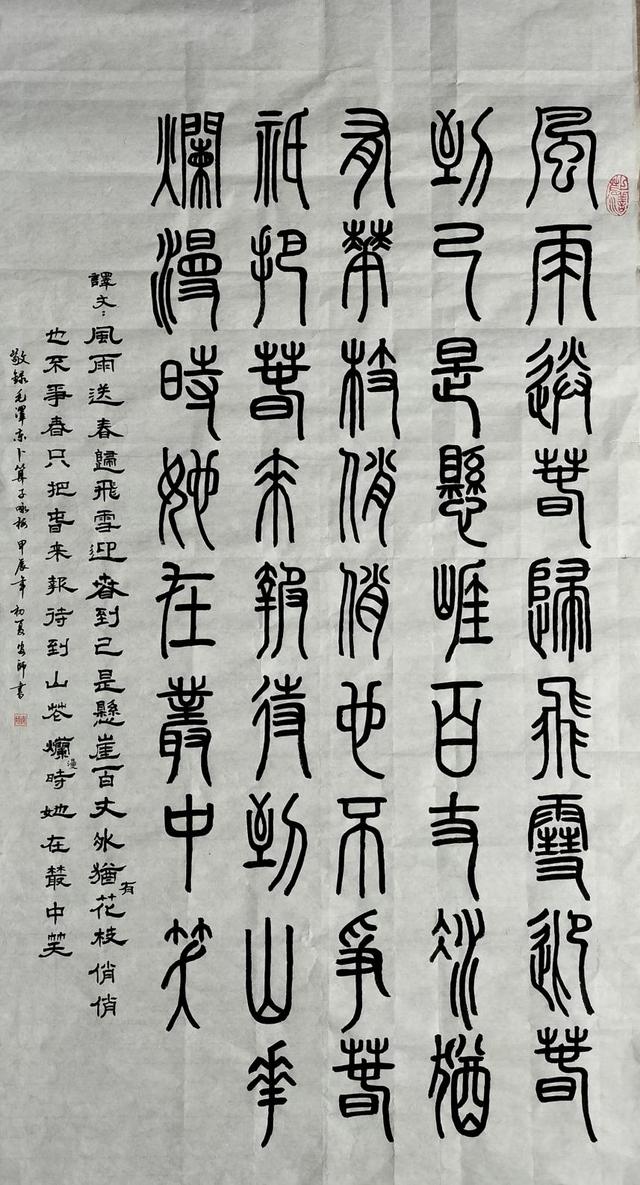 風雨送春歸飛雪迎春
到已是懸崖百丈冰猶
有華枝俏俏也不爭春
祇把春來報待到山華
爛漫時她在叢中笑
譯文：風雨送春歸飛雪迎春到已是懸崖百丈冰猶有花枝俏俏
也不爭春只把春来報待到山花爛漫時她在叢中笑
敬錄毛澤东卜算子咏梅 甲辰年初夏師書